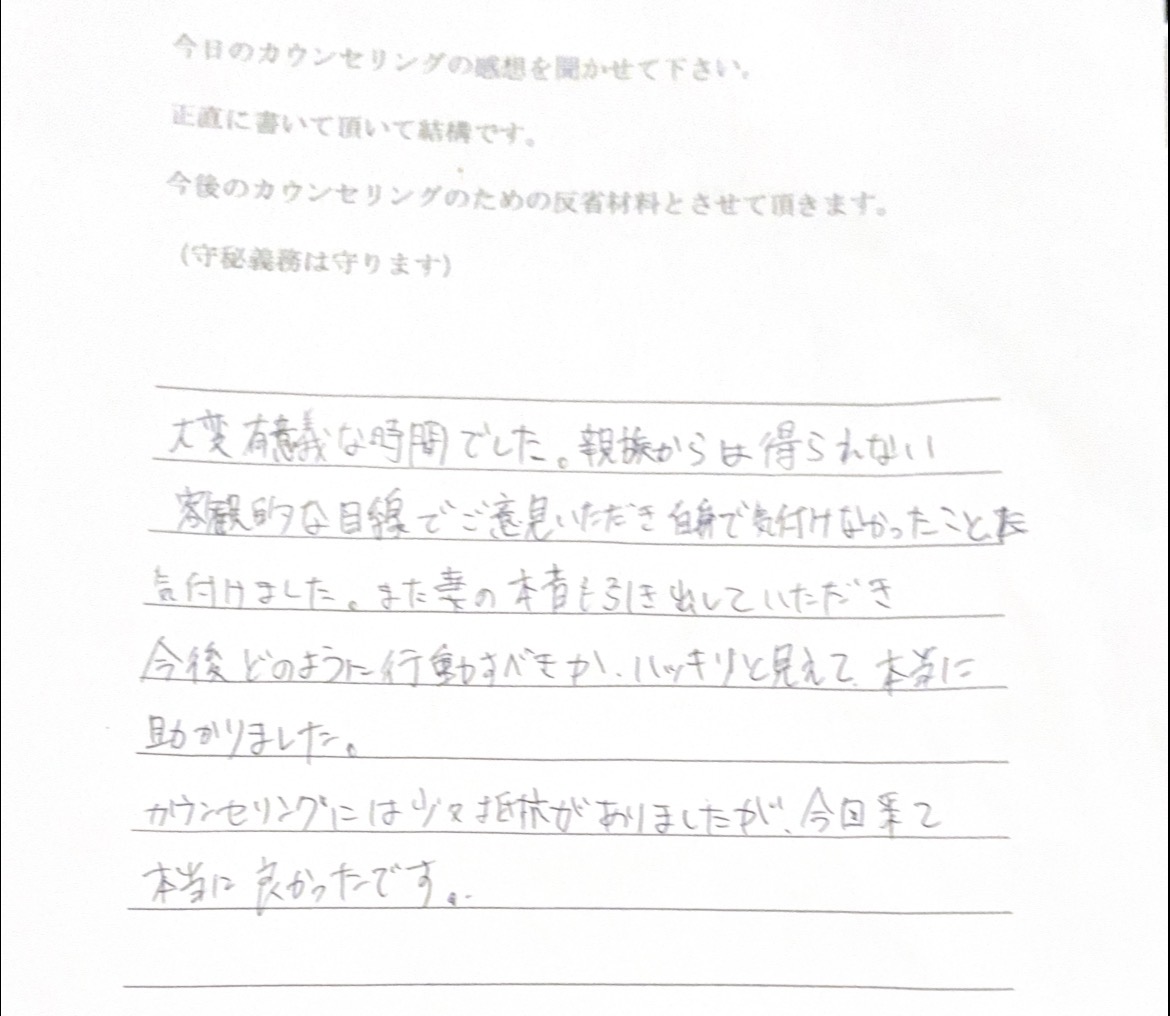 今日のカウンセリングの感想を聞かせて下さい。
正直に書いて頂いて結構です。
今後のカウンセリングのための反省材料とさせて頂きます。
(守秘義務は守ります)
大変有意義な時間でした。親族からは得られない
客観的な目線でご意見いただき自身で気付けなかったことに
気付けました。また妻の本音も引き出していただき
今後どのように行動すべきか、ハッキリと見えて、本当に
助かりました。
カウンセリングには少々抵抗がありましたが、今回来て
本当に良かったです。